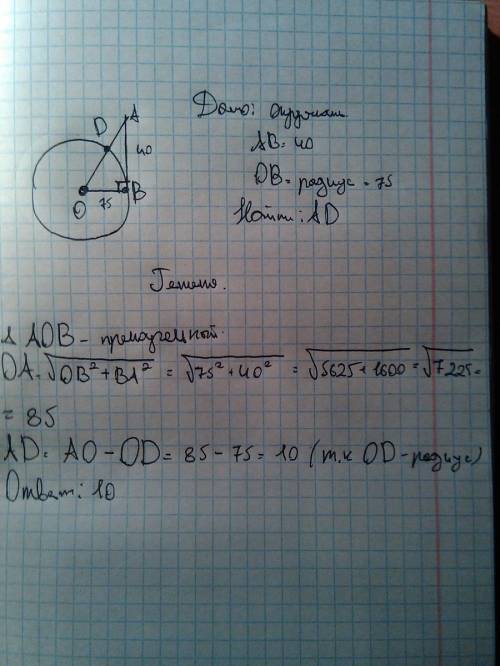 Дано: окружн.
AB = 40
OB = радиус = 75
Найти: AD
D A
40
O 75 B
Решение.
Δ AOB - прямоугольный.
OA = √OB² + BA² = √75² + 40² = √5625 + 1600 = √7225 =
= 85
AD = AO - OD = 85 - 75 = 10 (т.к OD - радиус)
Ответ: 10